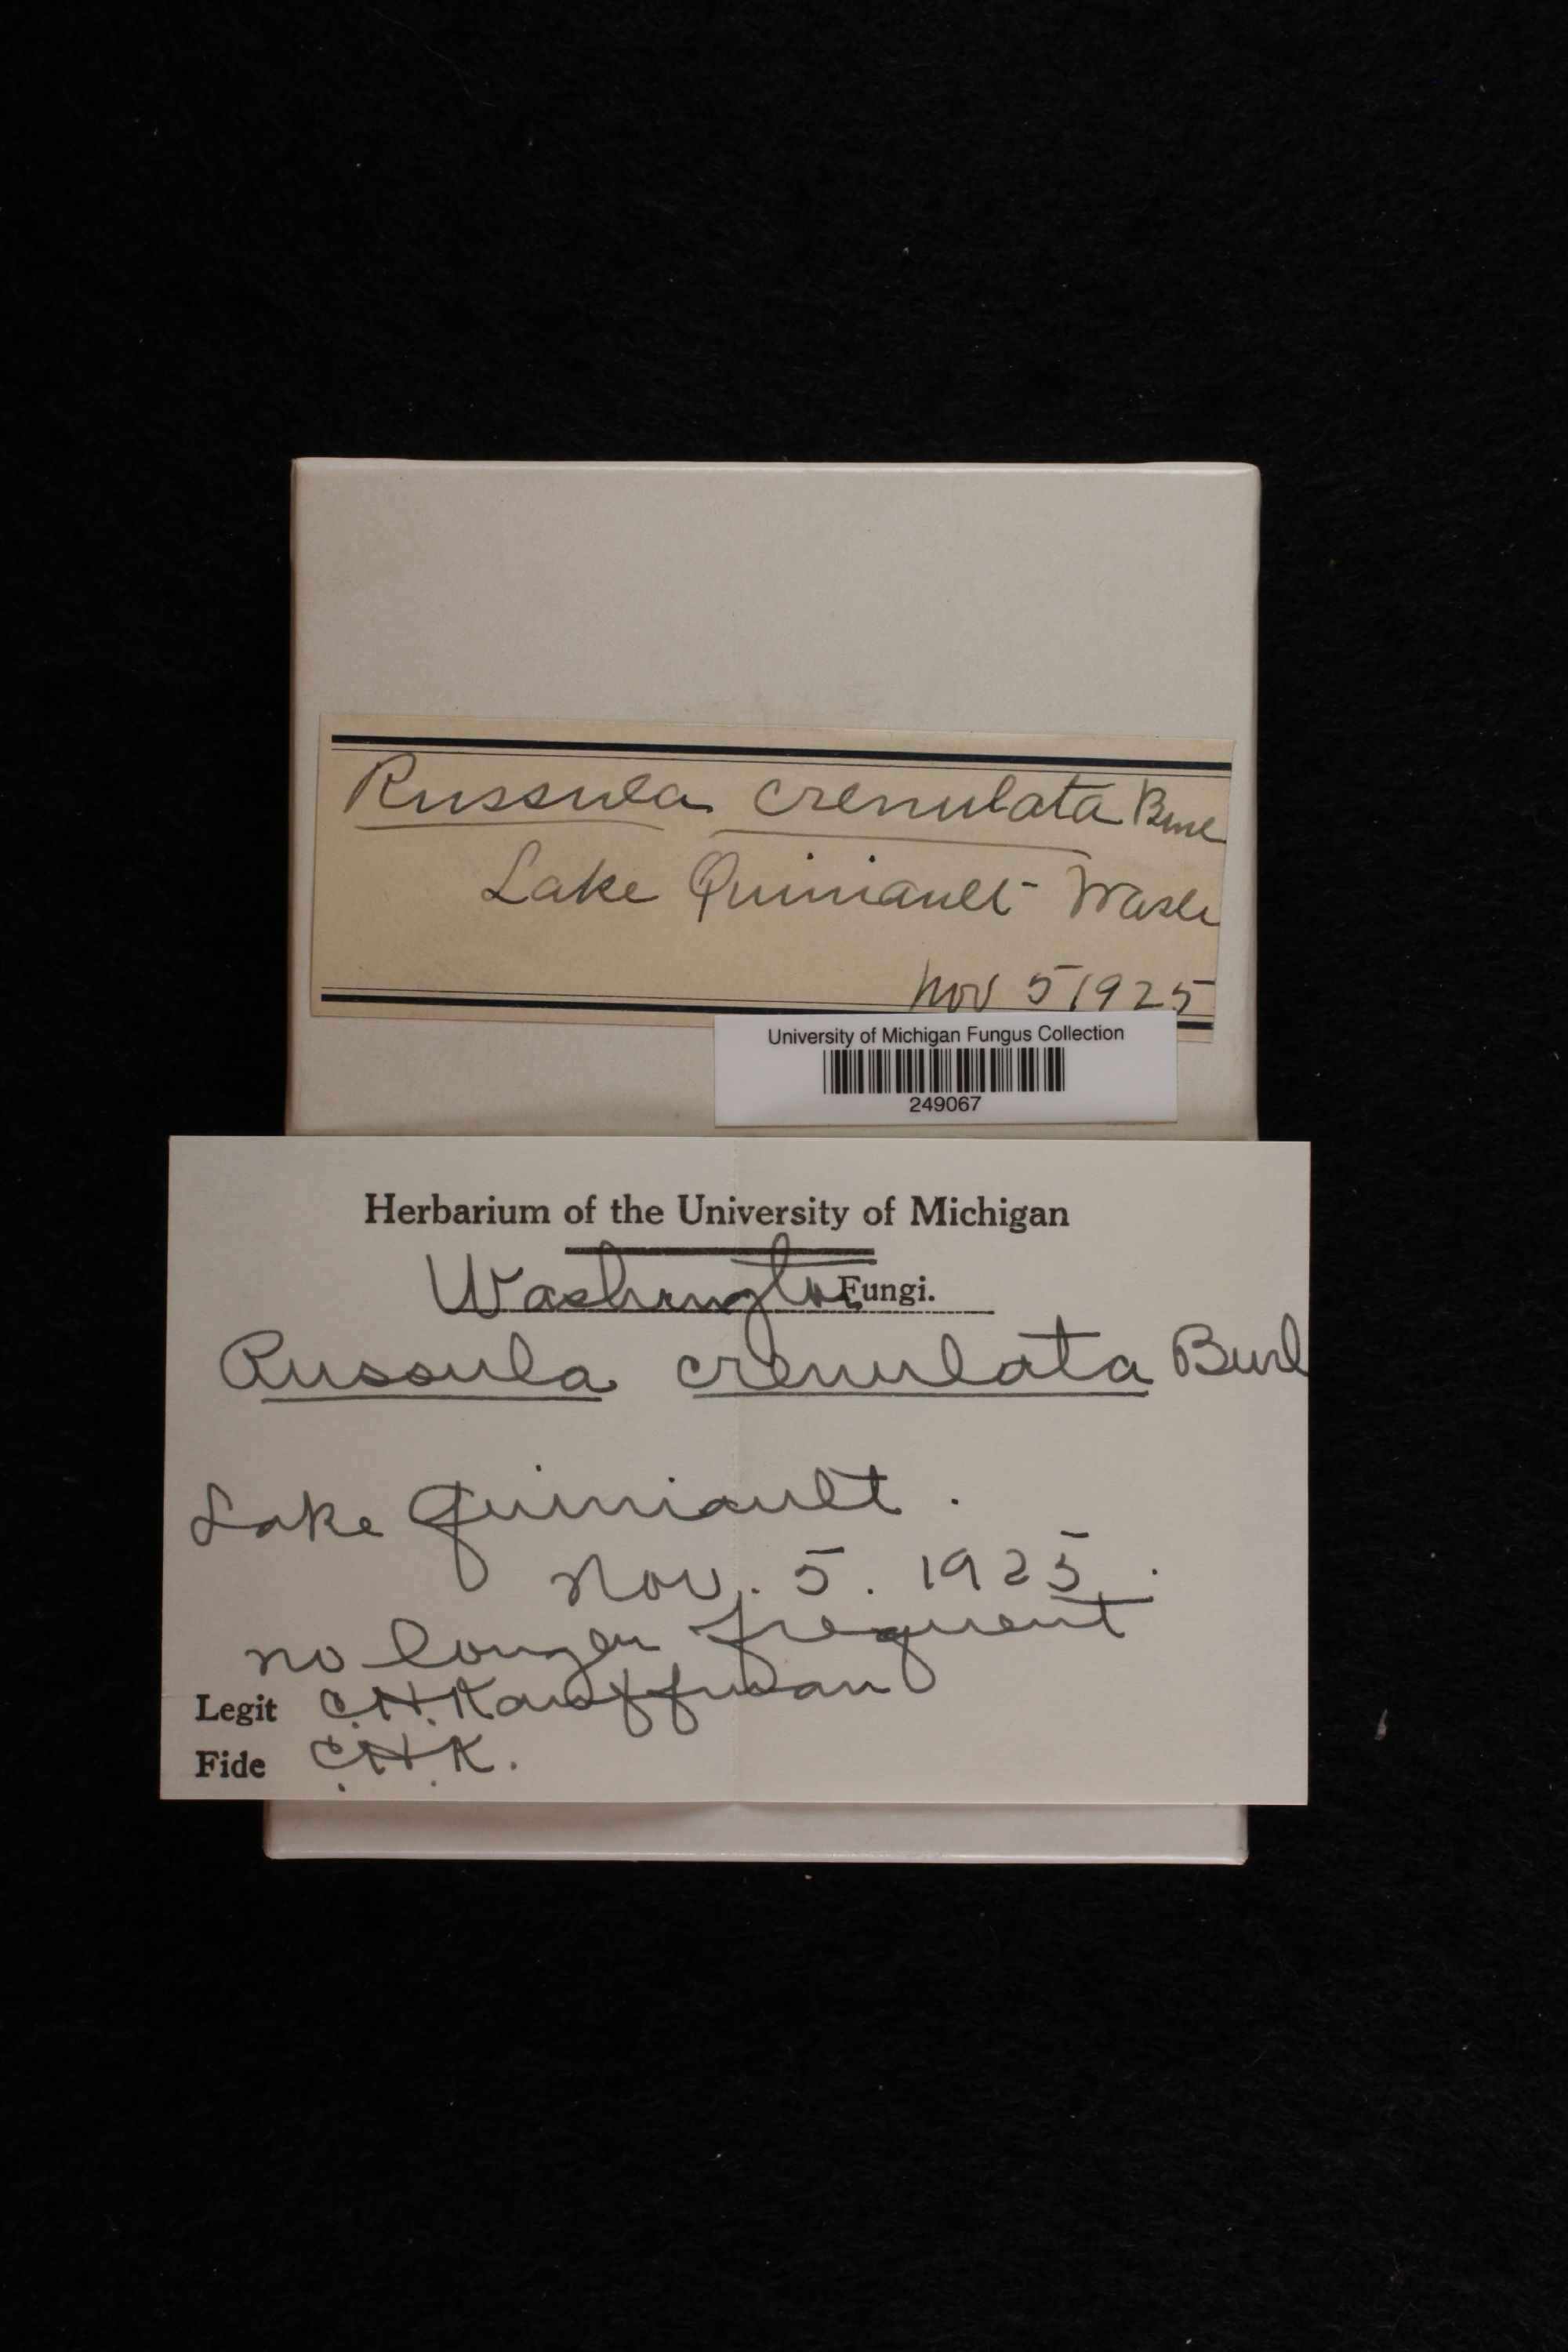 Russula crenulata Burl
Lake Quiniault Wash
Nov 5 1925
University of Michigan Fungus Collection
249067
Herbarium of the University of Michigan
Washington Fungi.
Russula crenulata Burl
Lake Quiniault.
Nov. 5. 1925.
no longer frequent
Legit C.H.Kauffman
Fide C.H.K.